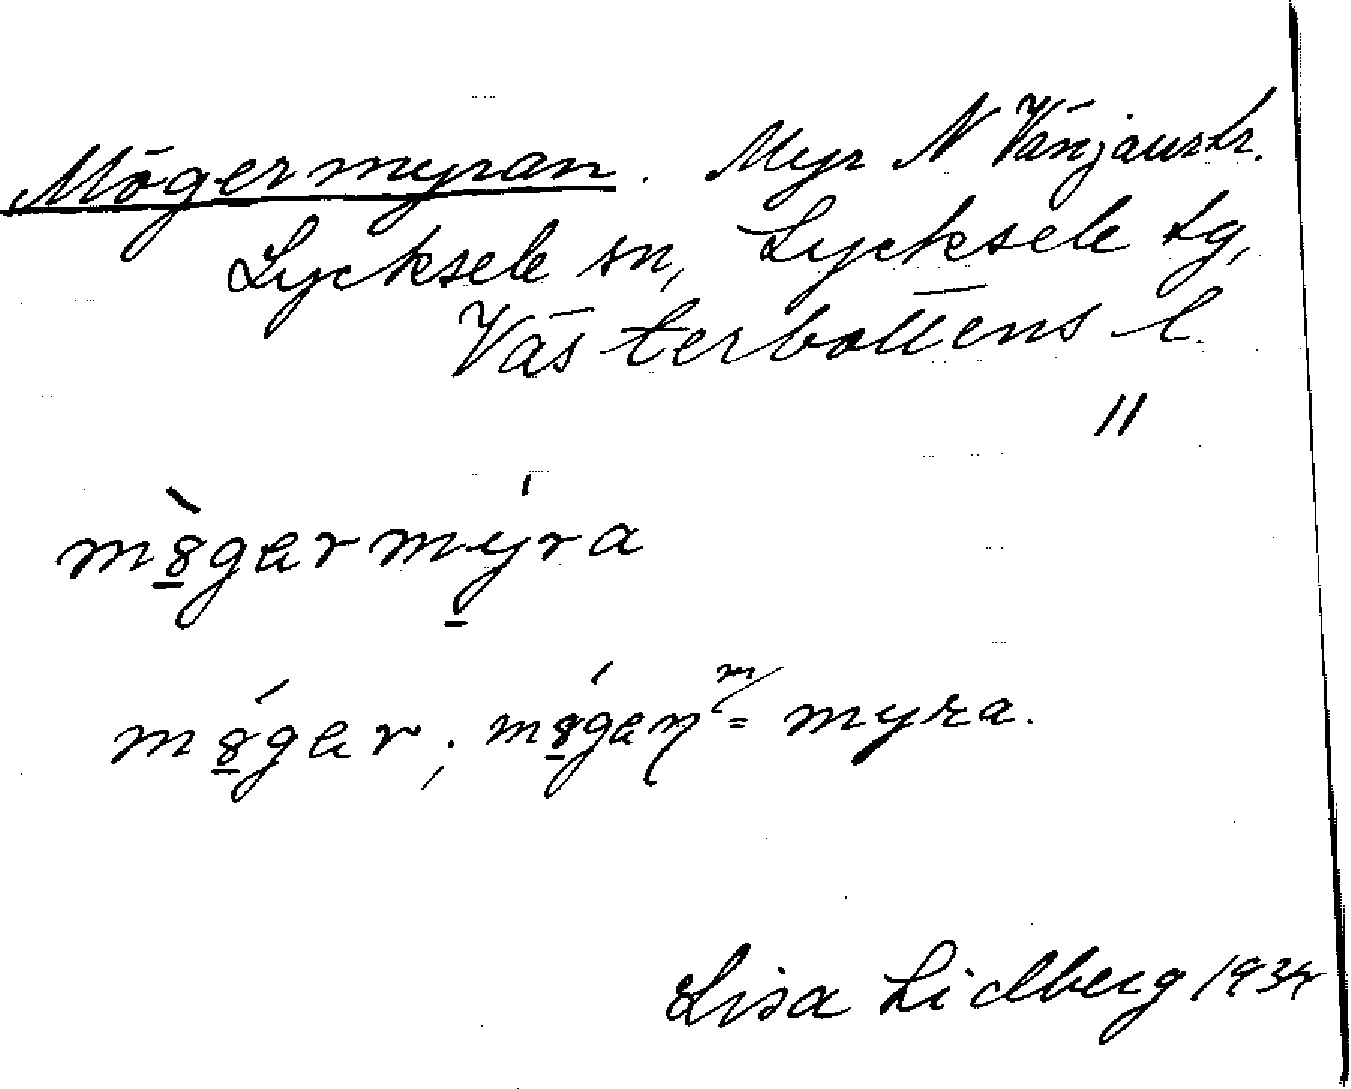 Mögermyran. Myr N Vänjaurtr.
Lycksele sn, Lycksele lg,
Västerbottens l.
11
mògermýra
móger; mógen m/= myra.
Lisa Lidberg 1934